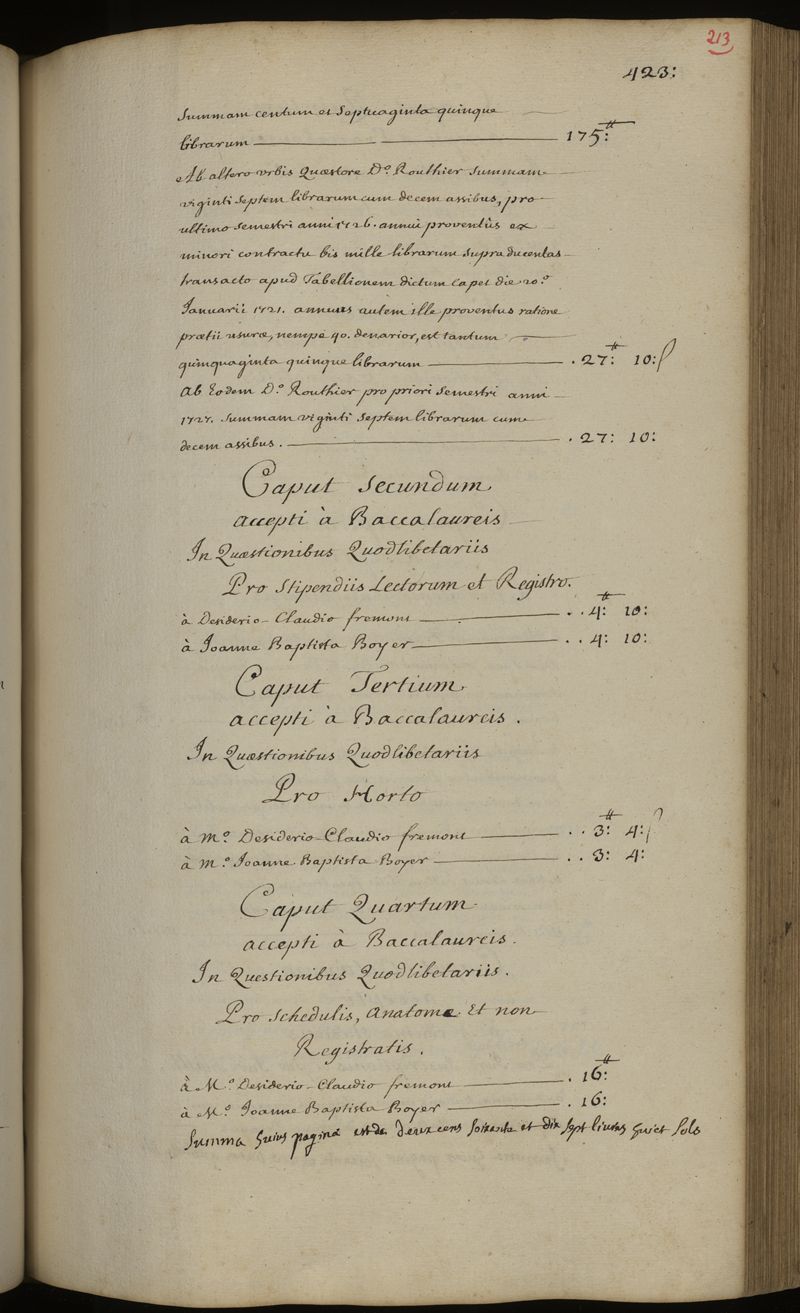 213
423:
Summam centum et Septuaginta quinque
librarum 175:tt
Ab altero urbis Quæstore D.º Routhier Summam
viginti Septem librarum cum decem assibus, pro
ultimo Semestri anni 1726. annui proventûs ex
minori contractu bis mille librarum Supra ducentas
transacto apud Tabellionem dictum Capet die 20.ª
Januarii 1721. annuus autem ille proventus ratione
prætii usuræ, nempe 40. denarior, est tantum
quinquaginta quinque librarum . 27:tt 10:ſ
Ab Eodem D.º Routhier pro priori Semestri anni
1727. Summam viginti Septem librarum cum
decem assibus . . 27: 10:
Caput Secundum
accepti à Baccalaureis
In Quæstionibus Quodlibetariis
Pro Stipendiis Lectorum et Registro.
à Desiderio-Claudio fremont . . 4:tt 10:
à Joanne Baptista Boyer . . 4: 10:
Caput Tertium
accepti à Baccalaureis .
In Quæstionibus Quodlibetariis
Pro Horto
à M.º Desiderio-Claudio fremont . . 3:tt 4:ſ
à M.º Joanne Baptista Boyer . . 3: 4:
Caput Quartum
accepti à Baccalaureis .
In Questionibus Quodlibetariis .
Pro Schedulis, Anatome Et non
Registratis .
à M.º Desiderio-Claudio fremont . 16:tt
à M.º Joanne Baptista Boyer . 16:
Summa huius paginæ est de deux cens soixante et dix sept livres huict sols